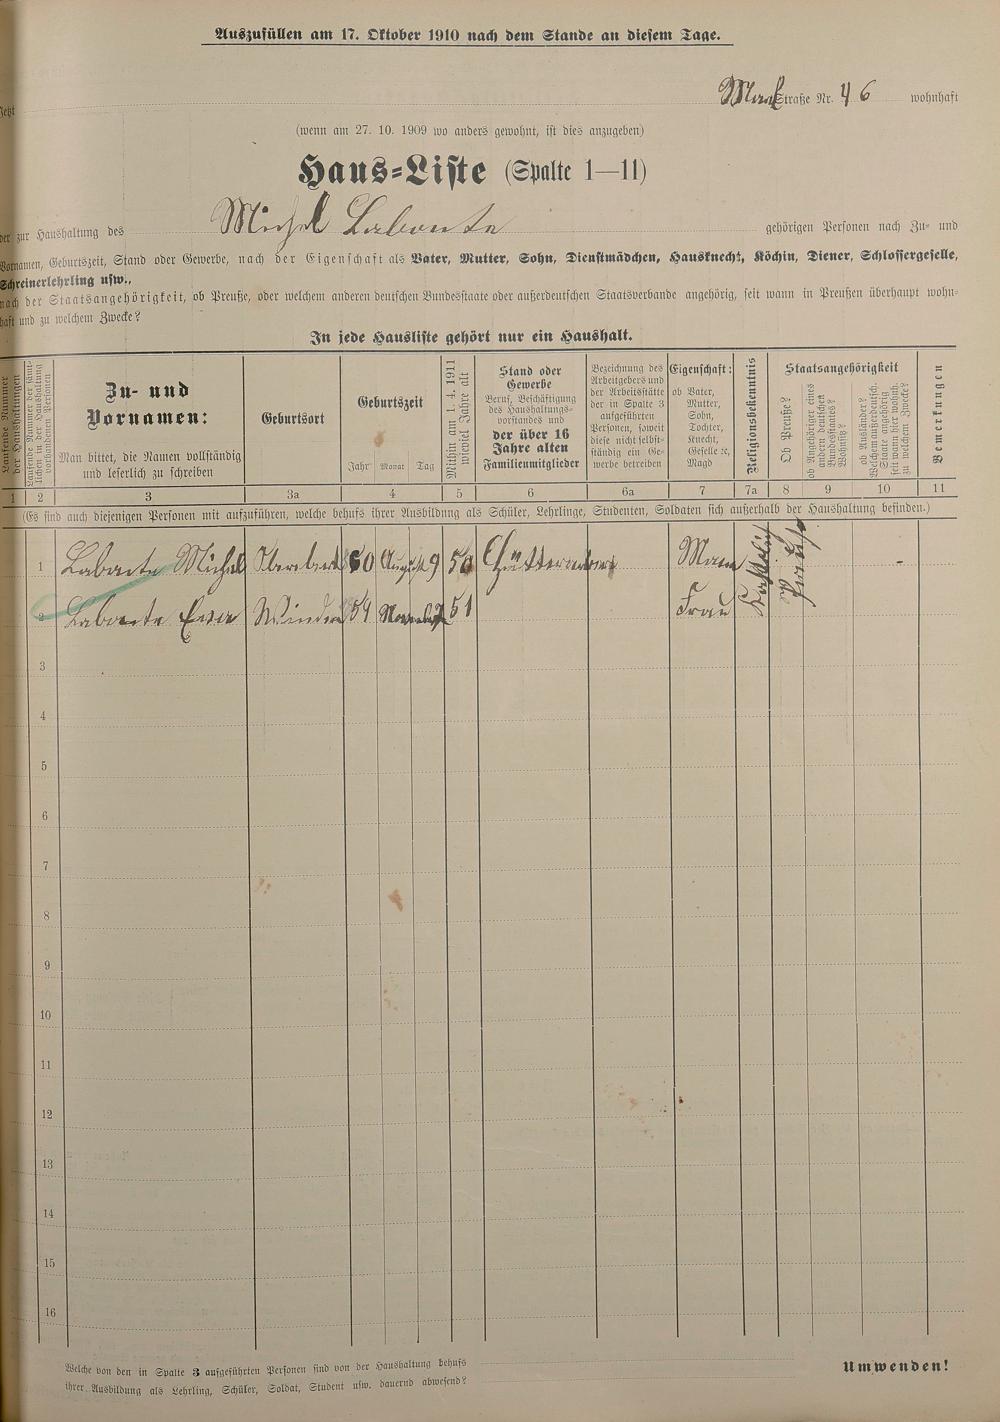 Auszufüllen am 17. Oktober 1910 nach dem Stande an diesem Tage.
Jetzt Straße Nr. 46 wohnhaft
(wenn am 27. 10. 1909 wo anders gewohnt, ist dies anzugeben)
Haus-Liste (Spalte 1—11)
der zur Haushaltung des Michel Labonte gehörigen Personen nach Zu- und
Vornamen, Geburtszeit, Stand oder Gewerbe, nach der Eigenschaft als Vater, Mutter, Sohn, Dienstmädchen, Hausknecht, Köchin, Diener, Schlossergeselle,
Schreinerlehrling usw.,
nach der Staatsangehörigkeit, ob Preuße, oder welchem anderen deutschen Bundesstaate oder außerdeutschen Staatsverbande angehörig, seit wann in Preußen überhaupt wohn-
haft und zu welchem Zwecke?
In jede Hausliste gehört nur ein Haushalt.
Laufende Nummer der Haushaltungen
Laufende Nummer der sämt-
lichen in der Haushaltung
vorhandenen Personen
Zu- und
Vornamen:
Man bittet, die Namen vollständig
und leserlich zu schreiben
Geburtsort
Geburtszeit
Jahr Monat Tag
Mithin am 1. 4. 1911
wieviel Jahre alt
Stand oder
Gewerbe
Beruf, Beschäftigung
des Haushaltungs-
vorstandes und
der über 16
Jahre alten
Familienmitglieder
Bezeichnung des
Arbeitgebers und
der Arbeitsstätte
der in Spalte 3
aufgeführten
Personen, soweit
diese nicht selbst-
ständig ein Ge-
werbe betreiben
Eigenschaft:
ob Vater,
Mutter,
Sohn,
Tochter,
Knecht,
Geselle ꝛc,
Magd
Religionsbekenntnis
Staatsangehörigkeit
Ob Preuße?
ob Angehöriger eines
andern deutschen
Bundesstaates?
Wohnsitz?
ob Ausländer?
Welchem außerdeutsch.
Staate angehörig
seit wann hier wohnh.
zu welchem Zwecke?
Bemerkungen
1 2 3 3a 4 5 6 6a 7 7a 8 9 10 11
(Es sind auch diejenigen Personen mit aufzuführen, welche behufs ihrer Ausbildung als Schüler, Lehrlinge, Studenten, Soldaten sich außerhalb der Haushaltung befinden.)
1 Labonte Michel August 9 50 Hüttenarbeiter Mann -
2 Labonte Ewa 59 51 Frau
3
4
5
6
7
8
9
10
11
12
13
14
15
16
Welche von den in Spalte 3 aufgeführten Personen sind von der Haushaltung behufs
ihrer Ausbildung als Lehrling, Schüler, Soldat, Student usw. dauernd abwesend?
Umwenden!